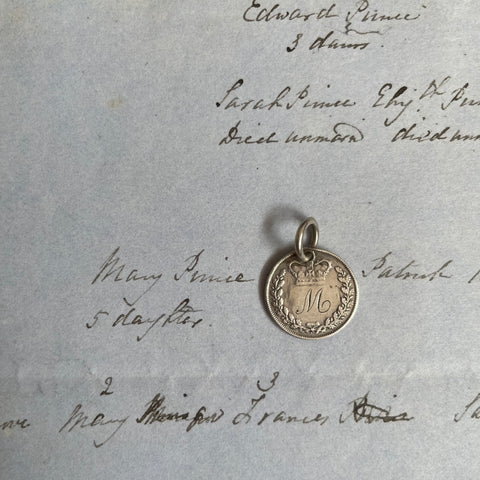 Edward Prince
3 daurs.
Sarah Prince Elizth Prin
Died unmard died unm
Mary Prince Patrick
M
5 daughters.
2 3
Mary Frances Sa